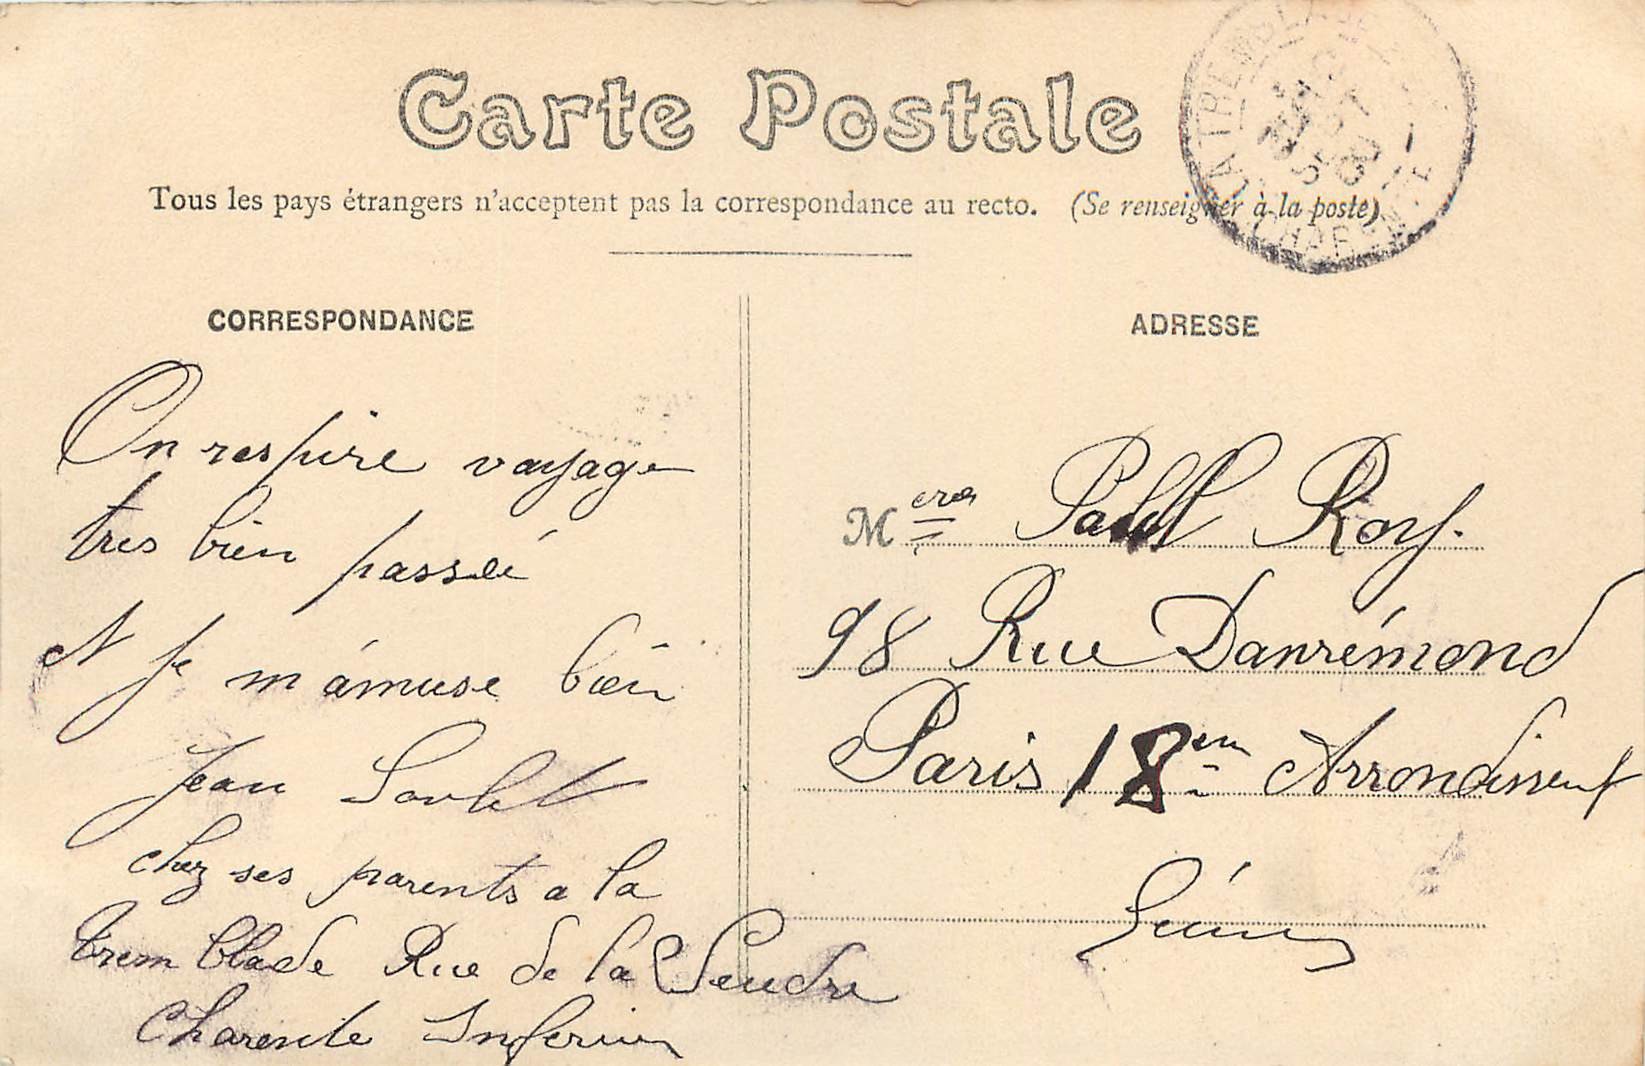 Carte Postale
Tous les pays étrangers n'acceptent pas la correspondance au recto. (Se renseigner à la poste)
LA TREMBLADE
CHARENTE
CORRESPONDANCE
On respire voyage
tres bien passeé
et Je m'ámuse bien
Jean Soulet
chez ses parents a la
trem blade Rue de la Seudre
Charente Inferieur
ADRESSE
M Paul Roy.
98 Rue Danrémond
Paris 18em Arrondissent